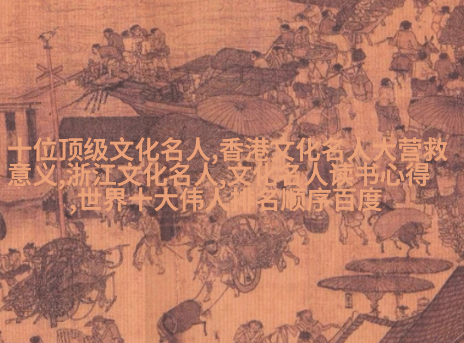 十位顶级文化名人,香港文化名人大营救
意义,浙江文化名人,文化名人读书心得
,世界十大伟人 名顺序百度